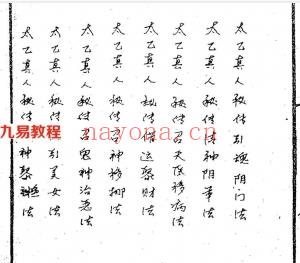 太乙真人秘传引魂阴门法
太乙真人秘传法神阴笔法
太乙真人秘传召天医移病法
太乙真人秘传催运聚财法
太乙真人秘传召神移挪法
太乙真人秘传召鬼神治恶法
太乙真人秘传引美女法
太乙真人秘传神聚法
九易教程
nayona.cn